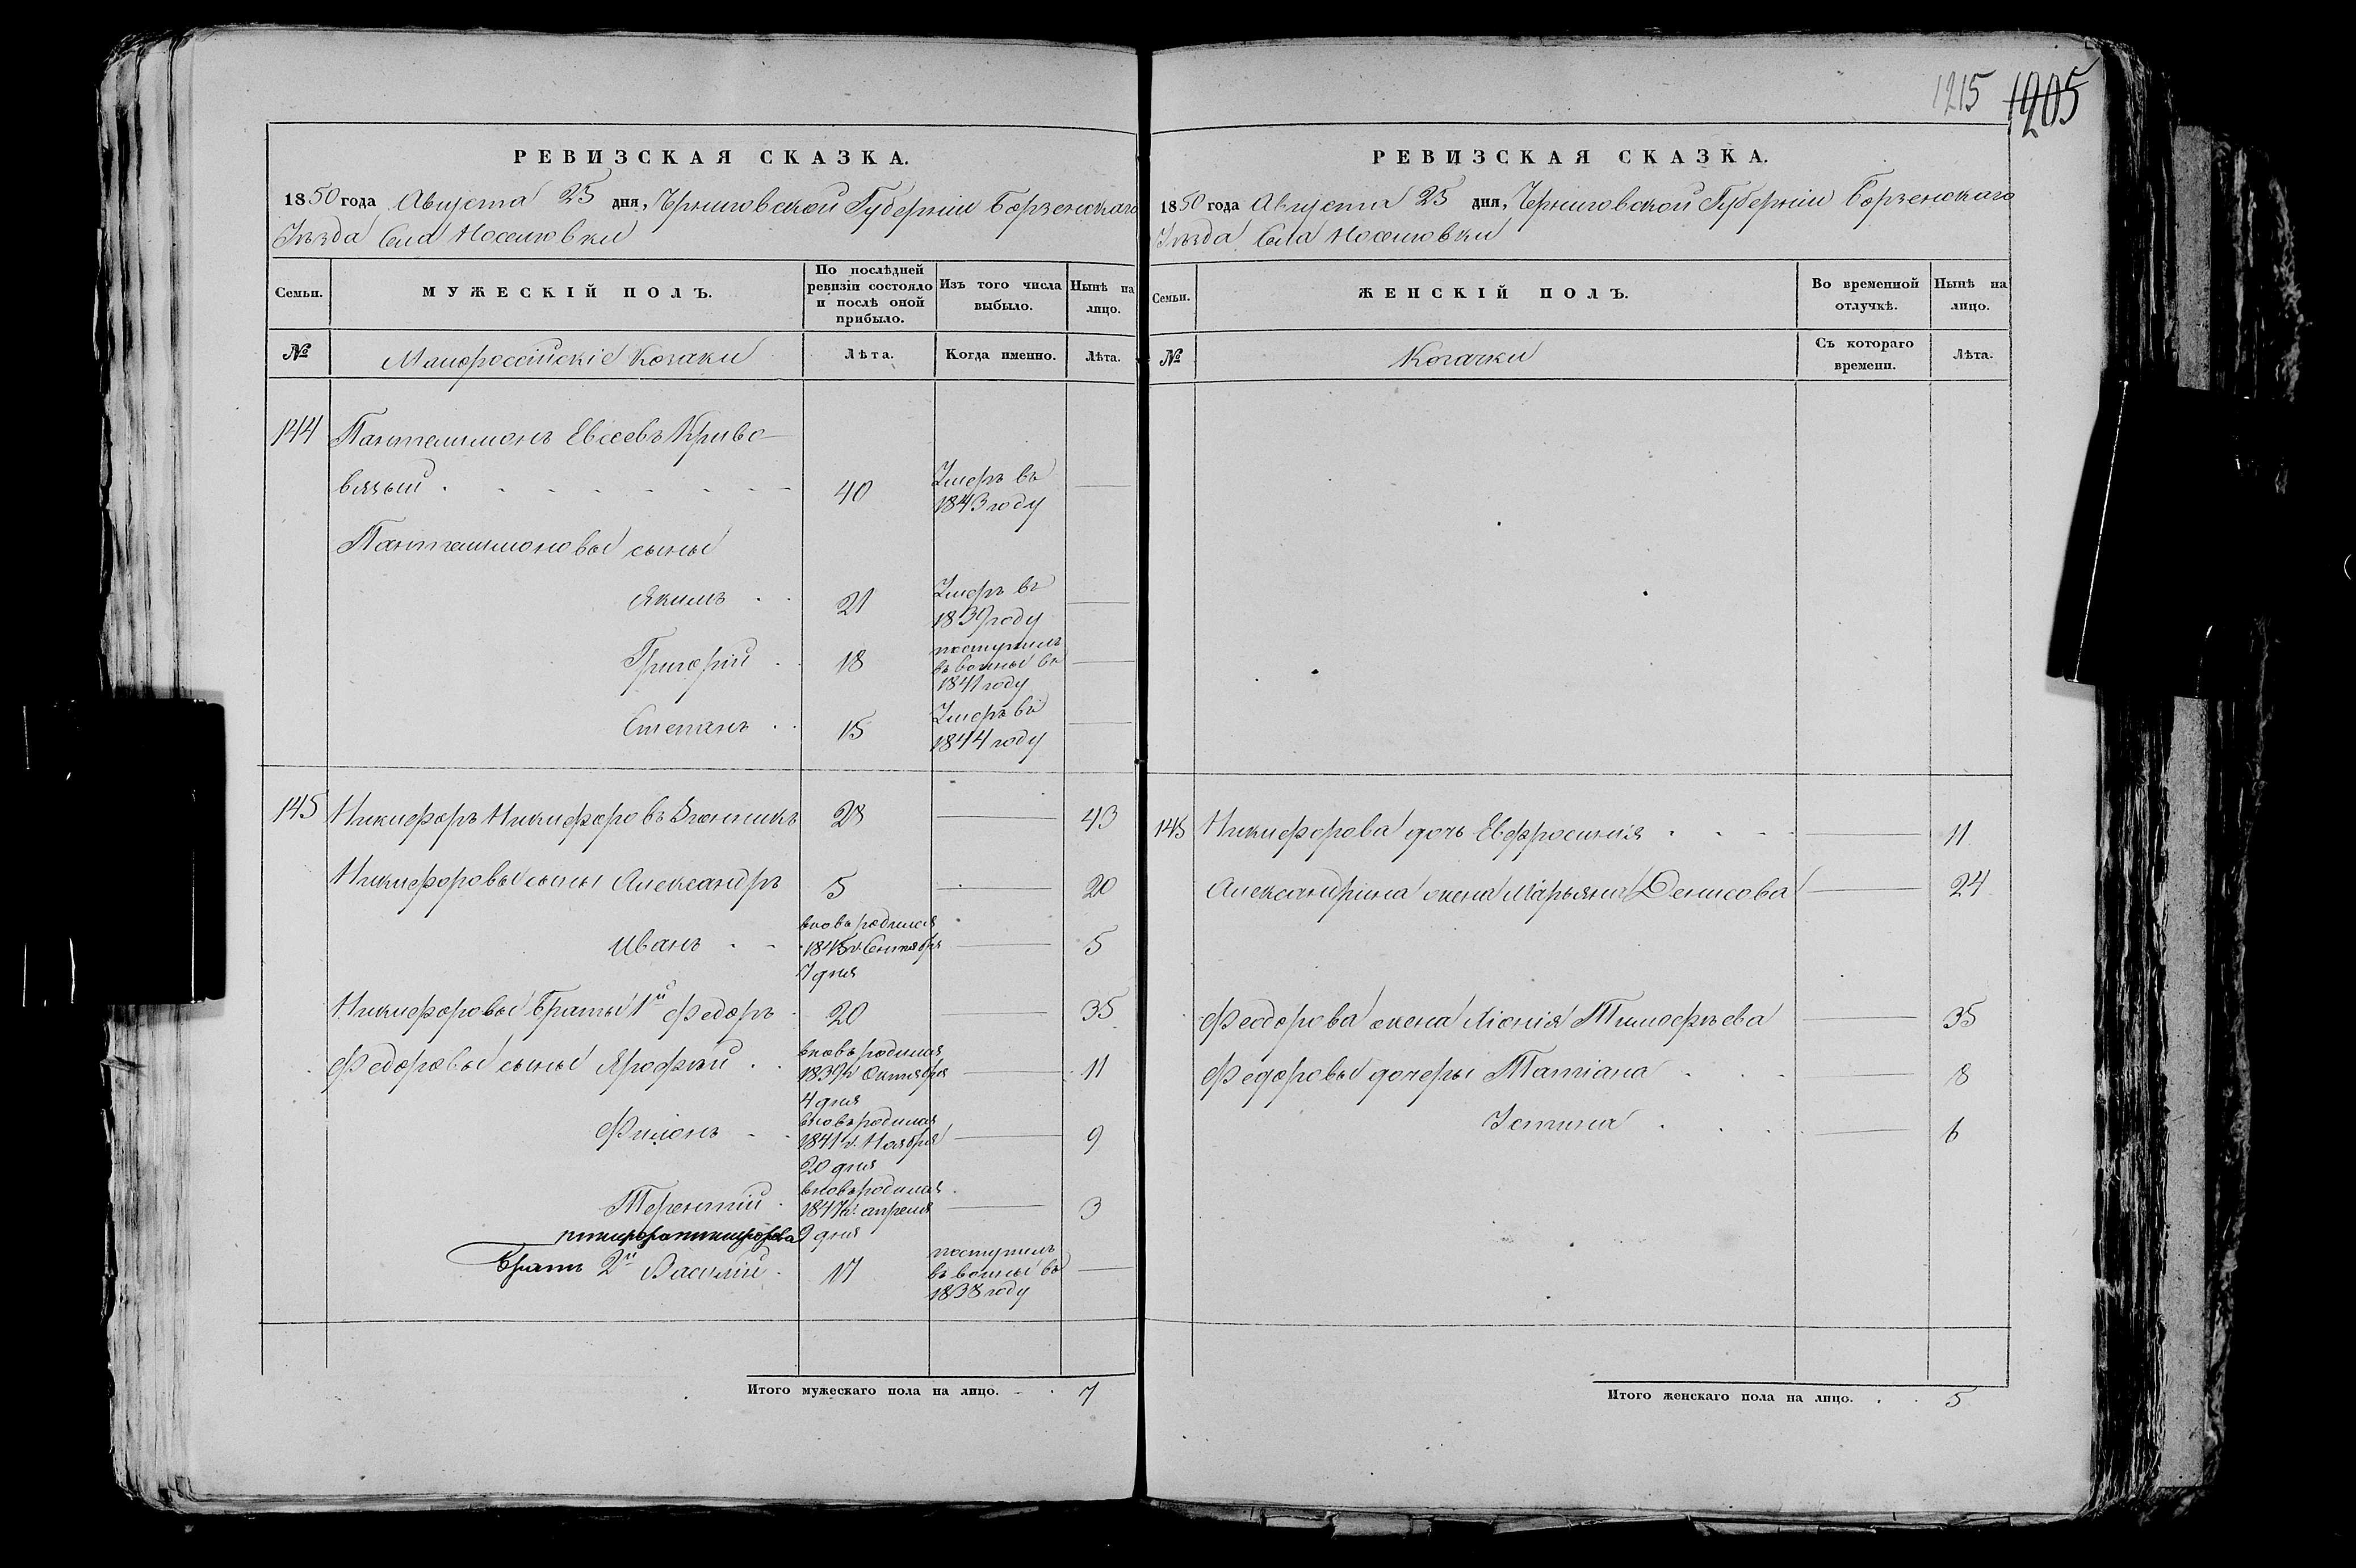 1215 1205
РЕВИЗСКАЯ СКАЗКА.
1850 года Августа 25 дня, Черниговской Губерніи Борзенскаго
Уѣзда Села Мосеиовки
Семьи.
МУЖЕСКІЙ ПОЛЪ.
По послѣдней ревизіи состояло и послѣ оной прибыло.
Изъ того числа выбыло.
Нынѣ на лицо.
№
Малороссійскіе Козаки
Лѣта.
Когда именно.
Лѣта.
144 Пантелимонъ Евсеевъ Криво-
вязый 40 Умеръ въ 1843 году
Пантелимоновы сыны
Якимъ 21 Умеръ въ 1839 году
Григорій 18 поступилъ въ воины въ 1841 году
Степанъ 15 Умеръ въ 1844 году
145 Никифоръ Никифоровъ 28 43
Никифоровы сыны Александръ 5 20
Иванъ вновь родился 1845 г. Сентября 7 дня 5
Никифоровы Братья 1й Федоръ 20 35
Федоровы сыны Ярофѣй вновь родился 1839 г. Октября 4 дня 11
Филонъ вновь родился 1841 г. Ноября 20 дня 9
Терентій вновь родился 1847 г. апреля 9 дня 3
Никифора Никифорова
Братъ 2й Василій 17 поступилъ въ воины въ 1838 году
Итого мужескаго пола на лицо. 7
РЕВИЗСКАЯ СКАЗКА.
1850 года Августа 25 дня, Черниговской Губерніи Борзенскаго
Уѣзда Села
Семьи.
ЖЕНСКІЙ ПОЛЪ.
Во временной отлучкѣ.
Нынѣ на лицо.
№
Козачки
Съ котораго времени.
Лѣта.
145 Никифорова дочь Евфросинія 11
Александрина жена Марьяна Денисова 24
Феодорова жена Хіонія Тимофѣева 35
Федоровы дочеры Татіана 8
Устина 6
Итого женскаго пола на лицо. 5